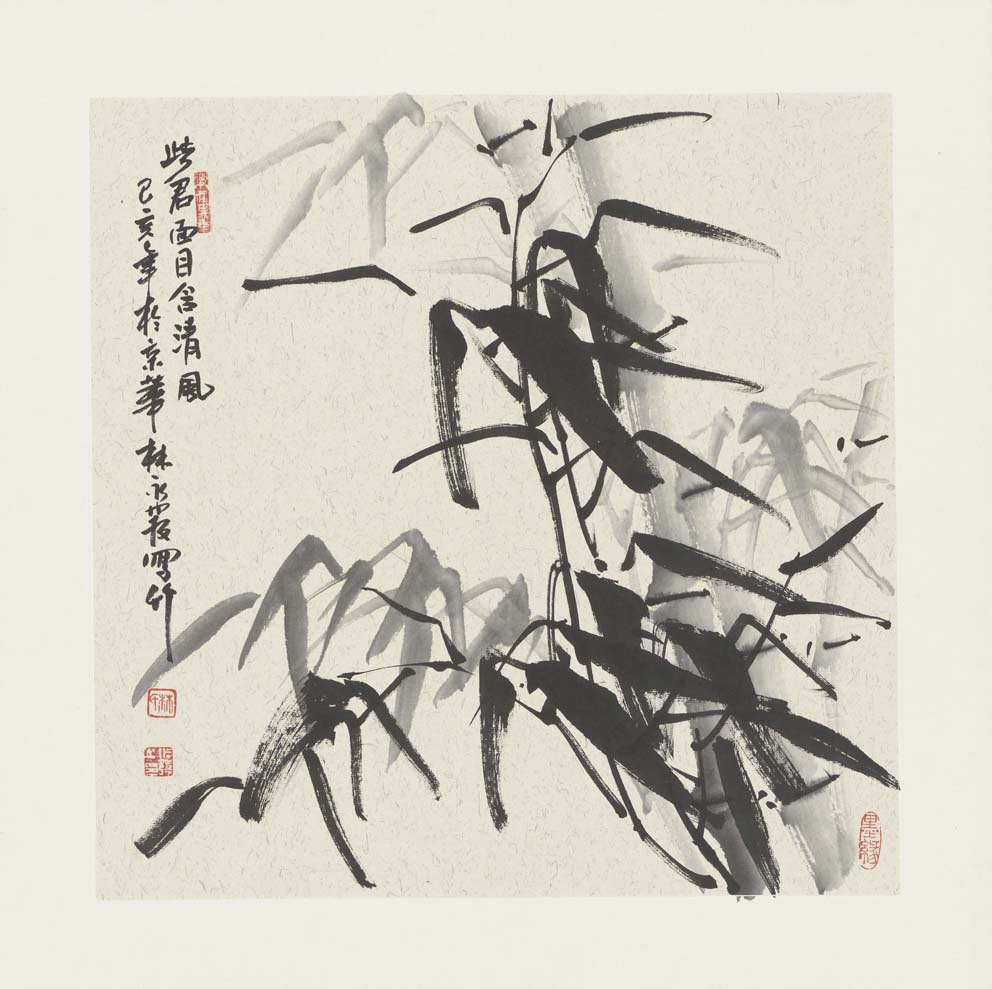 此君面目含清風
己亥年於京華林永發寫竹
墨緣